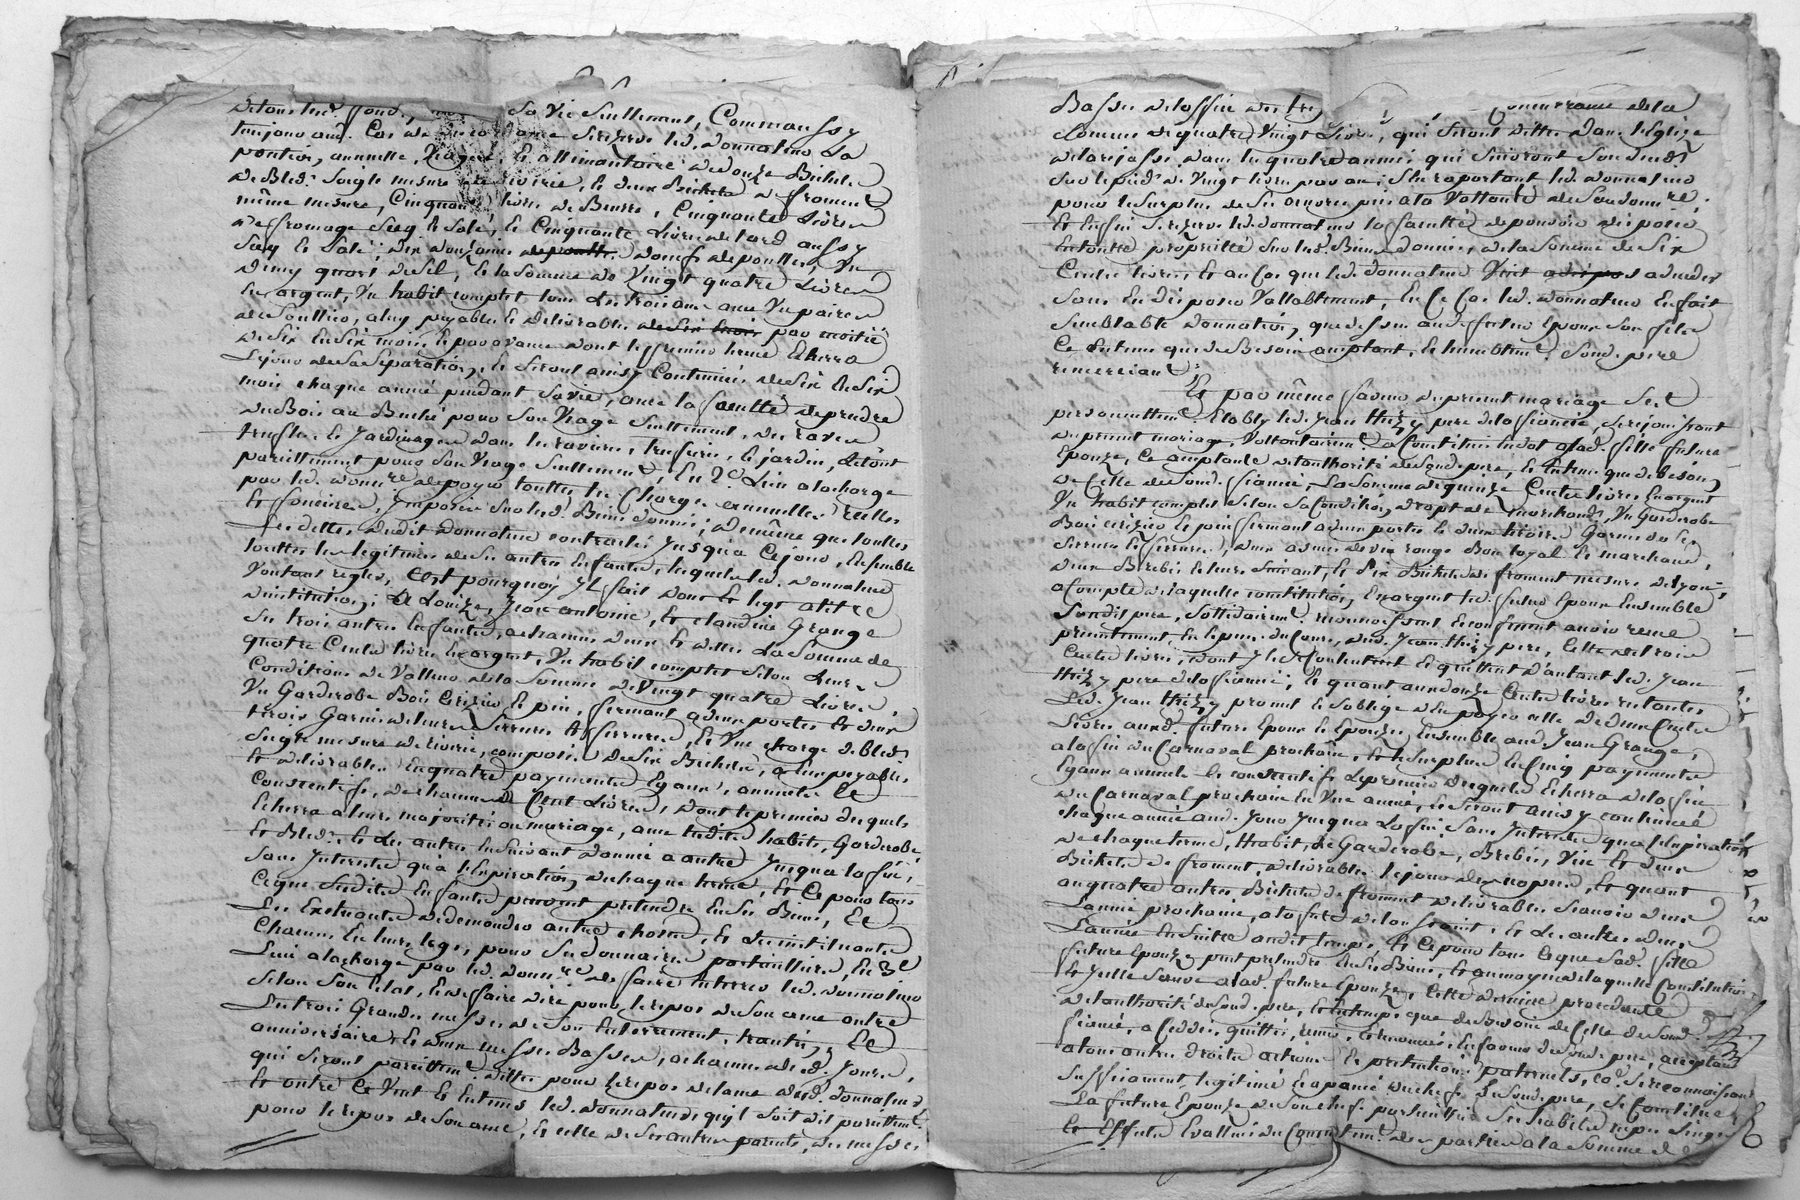 de tous lesd. fonds, sa vie Seullement, Comm aussy
toujours aud. Cas de se reserve led. donnateur La
pention, annuelle, viagere, et allimentaire de douze Bichets
de Bled Seigle mesure de riverie, et deux Bichets de froment
même mesure, Cinquante livres de Beurre, Cinquante Livres
de fromage Secq et Salé, et Cinquante Livres de lard aussy
Secq et Salé, dix douzaines d'oeufs de poulles, un
demy quart de sel, et la Somme de Vingt quatre Livres
en argent, un habit complet tous les trois ans avec Une paire
de Soulliers, a luy payable et delivrable par moitié
de Six en Six mois et par avance dont le premier terme Echerra
Le jour de la Separation, et seront ainsy Continués de Six en Six
mois chaque année pendant sa vie, avec la facullté de prendre
du Bois au Buché pour son Usage Seullement, des raves
truffes, et Jardinages dans les ravieres, truffieres, et jardin, le tout
pareillement pour son Usage Seullement, En 2e Lieu a la charge
par led. donn.re de payer touttes les Charges annuelles reelles
et foncieres, Imposées sur lesd. Biens donnés; de même que touttes
Les dettes dudit donnateur contractés Jusqu'a Ce jour, Ensemble
touttes les legitimes de ses autres Enfants, lesquelles led. donnateur
Voulant regler, C'est pourquoy Il fait dons et legs a titre
d'institution, a Louise, Jean antoine, et claudine Grange
ses trois autres Enfants, a chacun d'eux et d'elles La Somme de
quatre Cents livres En argent, Un habit complet selon Leur
Condition de Valleur de la Somme de Vingt quatre Livres,
Un Garderobe Bois Cerizier et pin, fermant a deux portes et deux
tirois Garnis de leurs Serrures et ferrures, et Une charge de bled
Seigle mesure de riverie, composée de Six Bichets, a Eux payable
et delivrable En quatre payements Egaux, annuels et
Consecutifs, de chacun Cent Livres, dont le premier desquels
Echerra a leurs majorités ou mariage, avec lesdits habits, Garderobe
et Bled et les autres En Suivant d'année a autre Jusqu'a la fin,
Sans Interets qu'a l'Expiration de chaque terme, et Ce pour tous
Ceque Sesdits Enfants peuvent pretendre En ses Biens, et
Les Excluants de demander autre chose, et les instituants
Chacun En leurs legs, pour ses donnaires particulliers, En 3e
Lieu a la charge par led. donn.re de faire Enterrer led. donnateur
selon son Etat, et de faire dire pour le repos de son ame outre
Les trois Grandes messes de son Enterrement, trantin, et
anniversaire, et d'une messe Basse, a chacun desd. Jours,
qui seront pareillem.t dittes pour le repos de l'ame dud. donnateur
et outre Ce Veut et Entend led. donnateur qu'il soit dit pareillem.t
pour le repos de son ame, et celle de ses autres parents, des messes
Basses de la
Somme de quatre Vingt Livres, qui seront dittes dans l'Eglise
de larajasse, dans les quatre années qui suivront son deced
sur le pied de Vingt livres par an; s'en raportant led. donnateur
pour le surplus de ses oeuvres pies a la Vollonté de son donn.re.
Et Enfin se reserve led. donnateur la facullté de pouvoir disposer
En toutte propriété sur lesd. Biens donnés, de la Somme de Six
Cents livres, et au Cas que led. donnateur Vint a deceder
sans En disposer Vallablement, En Ce Cas led. donnateur En fait
semblable donnation, que dessus audit futur Epoux son fils
Ce Entems que de Besoin acceptant, et humblem.t sond. pere
remerciant.
Et par même faveur du present mariage s'est
personnellem.t Etably led. Jean thizy pere de la fiancée, se rejouissant
du present mariage, Vollontairem.t a Constitué En dot a lad. fille future
Epouze, Ce acceptante de l'authorité de sond. pere, et Entems que de besoin
de Celle de sond. fiancé, La Somme de quinze Cents livres En argent
Un habit complet selon sa Condition, drapt de marchands, Un Garderobe
Bois cerizier et pin fermant a deux portes et deux tirois Garnis de ses
serrures et ferrures, d'une asnée de vin rouge Bon loyal et marchand,
d'une Brebis et leur suivant, et Six Bichets de froment mesure de lyon;
a Compte de laquelle constitution, En argent led. futur Epoux Ensemble
Sondit pere, Sollidairem.t reconnoissent et confessent avoir receu
presentement En Especes du Cours, dud. Jean thizy pere, Celle de trois
Cents livres, dont Ils se Contentent et quittent d'autant led. Jean
thizy pere de la fiancée, et quant aux douze Cents livres restantes
Led. Jean thizy promet et s'oblige d'En payer celle de deux Cents
Livres auxd. futurs Epoux et Epouze, Ensemble aud. Jean Grange,
a la fin du Carnaval prochain, et le surplus En Cinq payements
Egaux annuels et consecutifs Le premier desquels Echerra a la fin
du Carnaval prochain En Une année, et seront ainsy continués
chaque année aud. Jour Jusqu'a La fin. Sans Interets qu'a l'Expiration
de chaque terme, L'habit, le Garderobe, Brebis, Vin et deux
Bichets de froment, delivrables le jour des nopces, Et quant
aux quatre autres Bichets de froment delivrables sçavoir deux
L'année prochaine, a la feste de la toussaint, et les autres deux
L'année Ensuitte audit temps, Et Ce pour tous Ceque lad. fille
future Epouze peut pretendre En ses Biens, et au moyen de laquelle Constitution
et Jcelle Sauve a lad. future Epouze, Cette derniere procedante
de l'authorité de sond. pere, et Entemps que de Besoin de Celle de sond.
fiancé, a Ceddé, quitté, remis, et renoncé En faveur de sond. pere, acceptant
a tous autres droits actions et pretentions paternels, Se reconnoissant
suffisament legitimée Et apanée du chef de sond. pere, se Constitue
La future Epouze de son chef particullier ses habits nipes linges
et Effets Evallués du Consentem.t des parties a la Somme de